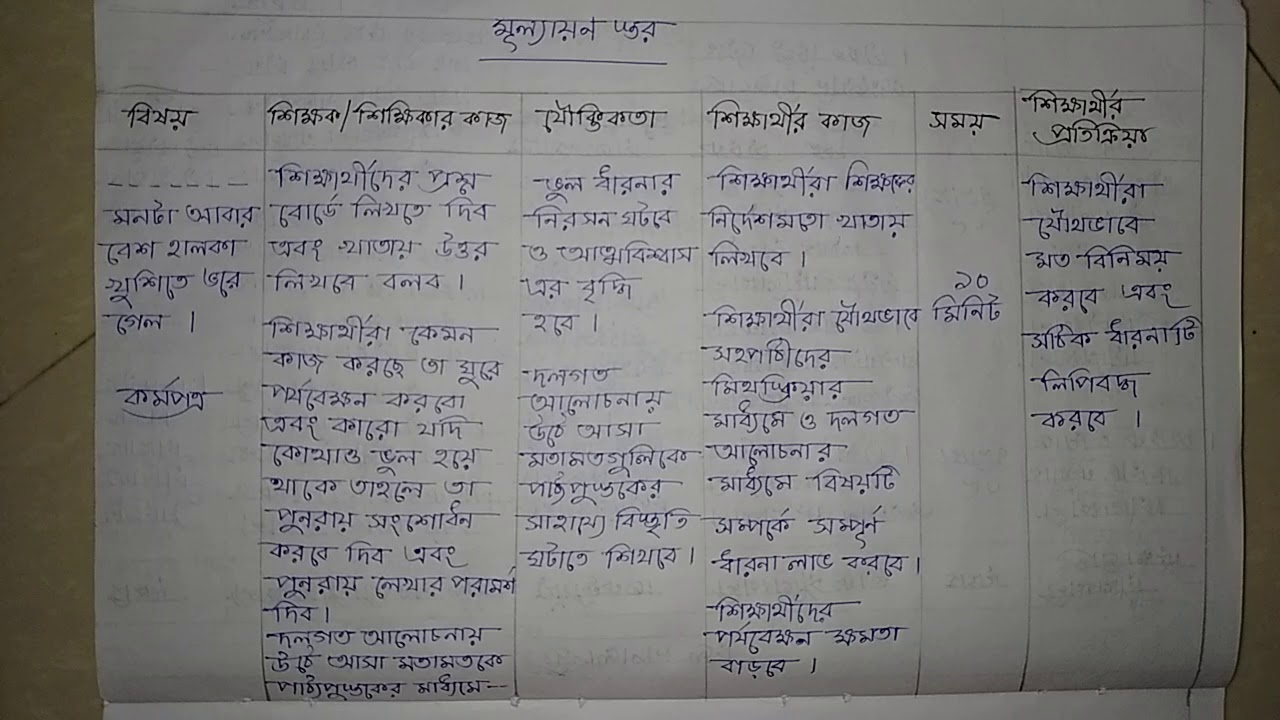 মূল্যায়ন স্তর
বিষয়
শিক্ষক/শিক্ষিকার কাজ
যৌক্তিকতা
শিক্ষার্থীর কাজ
সময়
শিক্ষার্থীর
প্রতিক্রিয়া
-------
মনটা আবার
বেশ হালকা
খুশিতে ভরে
গেল ।
কর্মপত্র
শিক্ষার্থীদের প্রশ্ন
বোর্ডে লিখতে দিব
এবং খাতায় উত্তর
লিখবে বলব ।
শিক্ষার্থীরা কেমন
কাজ করছে তা ঘুরে
পর্যবেক্ষন করবো
এবং কারো যদি
কোথাও ভুল হয়ে
থাকে তাহলে তা
পুনরায় সংশোধন
করবে দিব এবং
পুনরায় লেখার পরামর্শ
দিব ।
দলগত আলোচনায়
উঠে আসা মতামতকে
পাঠ্যপুস্তকের মাধ্যমে--
ভুল ধারনার
নিরসন ঘটবে
ও আত্মবিশ্বাস
এর বৃদ্ধি
হবে ।
দলগত
আলোচনায়
উঠে আসা
মতামতগুলিকে
পাঠ্যপুস্তকের
সাহায্যে বিস্তৃতি
ঘটাতে শিখবে ।
শিক্ষার্থীরা শিক্ষকের
নির্দেশমতো খাতায়
লিখবে ।
শিক্ষার্থীরা যৌথভাবে
সহপাঠীদের
মিথস্ক্রিয়ার
মাধ্যমে ও দলগত
আলোচনার
মাধ্যমে বিষয়টি
সম্পর্কে সম্পূর্ন
ধারনা লাভ করবে ।
শিক্ষার্থীদের
পর্যবেক্ষন ক্ষমতা
বাড়বে ।
১০
মিনিট
শিক্ষার্থীরা
যৌথভাবে
মত বিনিময়
করবে এবং
সঠিক ধারনাটি
লিপিবদ্ধ
করবে ।